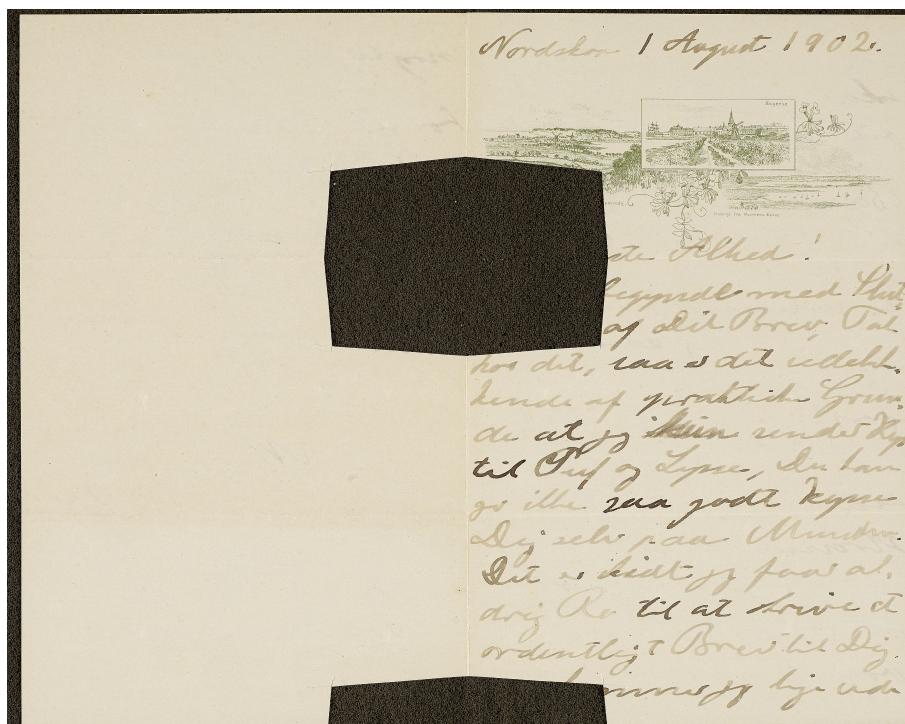 Nordskov 1 August 1902.
Bogense
ste Alhed!
begyndte med Slut-
af Dit Brev, Tak
for det, saa er det udeluk-
kende af praktiske Grun-
de at jeg kun sender Kys
til Puf og Lysse, Du kan
jo ikke saa godt kysse
Dig selv paa Munden.
Det er kedt jeg faar al-
drig Ro til at skrive et
ordentligt Brev til Dig.
kommer jeg lige ude